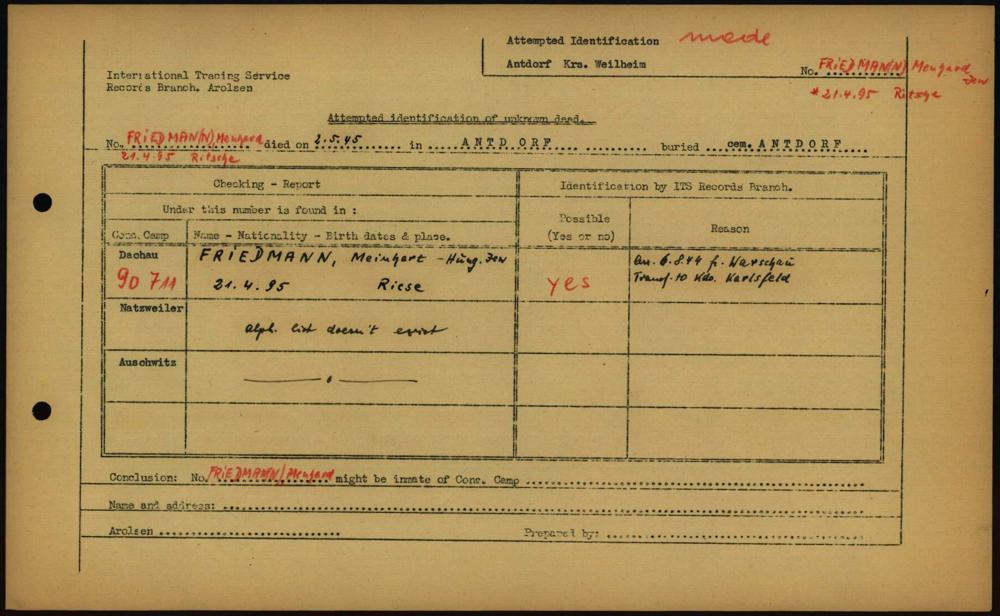 Attempted Identification made
Antdorf Krs. Weilheim
No. FRIEDMAN(N) Mengard Jew
* 21.4.95 Ritsche
International Tracing Service
Records Branch. Arolsen
Attempted identification of unknown dead.
No. FRIEDMAN(N) Mengard died on 2.5.45 in ANTDORF buried cem. ANTDORF
21.4.95 Ritsche
Checking - Report
Identification by ITS Records Branch.
Under this number is found in :
Possible
(Yes or no)
Reason
Conc. Camp
Name - Nationality - Birth dates & place.
Dachau
FRIEDMANN, Meinhart - Hung. Jew
an. 6.8.44 fr. Warschau
90 711
21.4.95 Riese
yes
Transf. to Kdo. Karlsfeld
Natzweiler
alph. list doesn't exist
Auschwitz
Conclusion: No. FRIEDMAN(N) Mengard might be inmate of Conc. Camp
Name and address:
Arolsen
Prepared by: